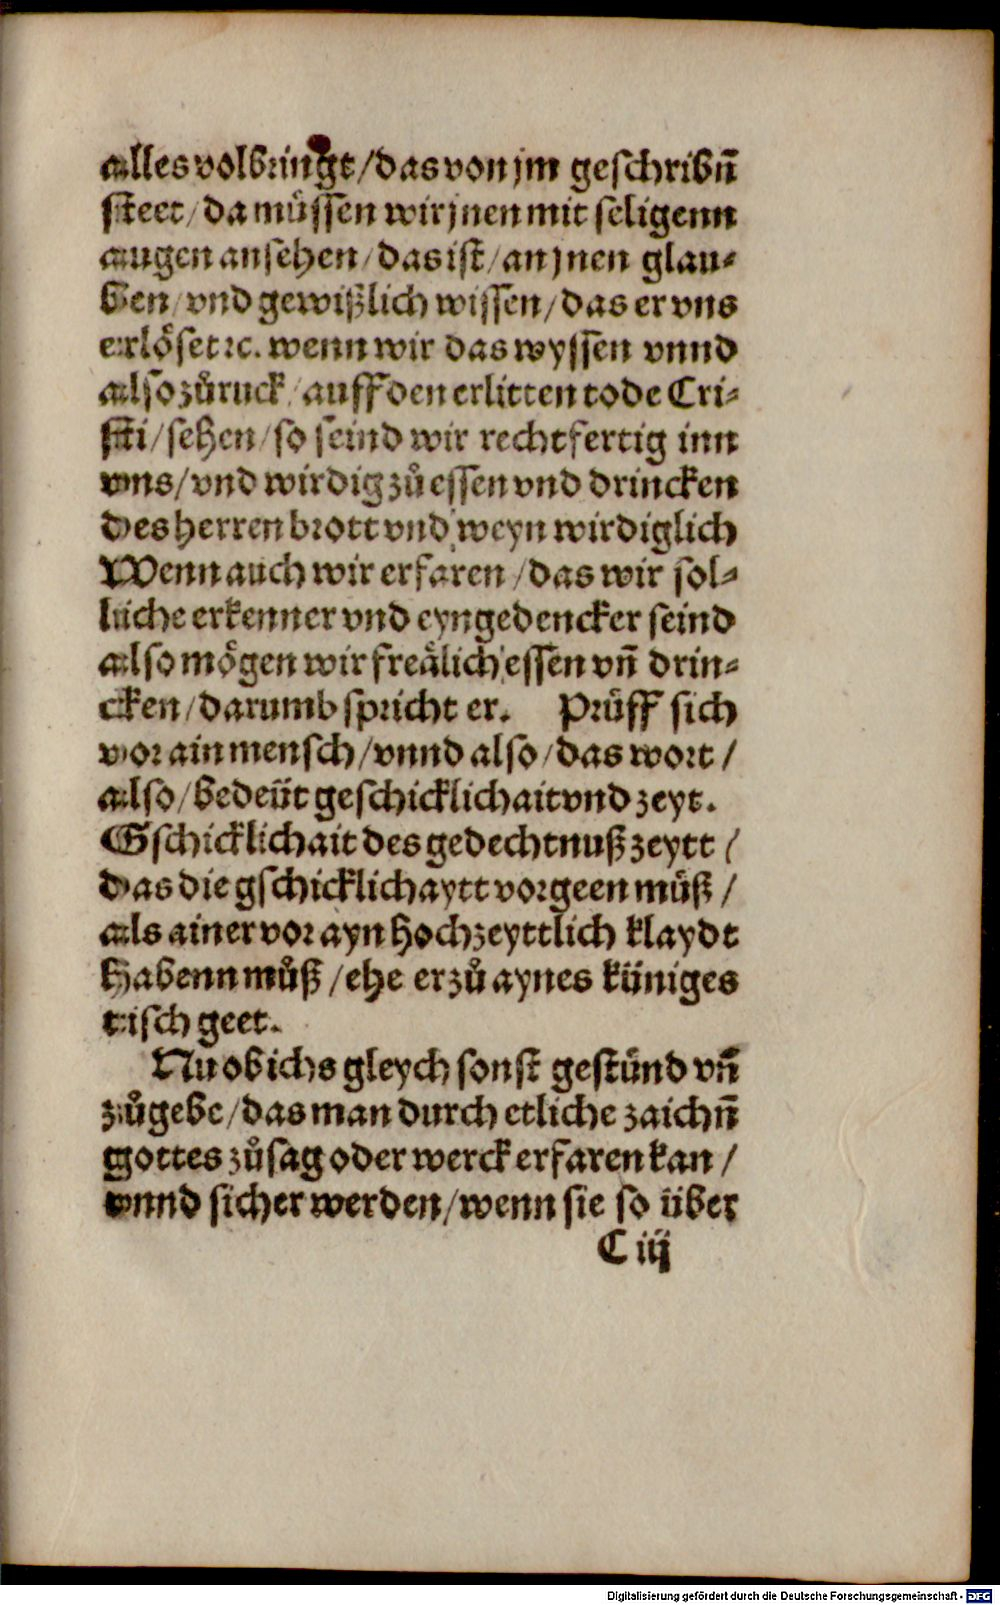 alles volbringt / das von jm geschribñ
steet / da müssen wir jnen mit seligenn
augen ansehen / das ist / an jnen glau⸗
ben / vnd gewißlich wissen / das er vns
erlöset ꝛc. wenn wir das wyssen vnnd
also zůruck / auff den erlitten tode Cri⸗
sti / sehen / so seind wir rechtfertig inn
vns / vnd wirdig zů essen vnd drincken
des herren brott vnd weyn wirdiglich
Wenn auch wir erfaren / das wir sol⸗
liche erkenner vnd eyngedencker seind
also mögen wir freälich essen vñ drin⸗
cken / darumb spricht er. Prüff sich
vor ain mensch / vnnd also / das wort /
also / bedeüt geschicklichait vnd zeyt.
Gschicklichait des gedechtnuß zeytt /
das die gschicklichaytt vorgeen müß /
als ainer vor ayn hochzeyttlich klaydt
habenn můß / ehe er zů aynes küniges
tisch geet.
Nu ob ichs gleych sonst gestünd vñ
zůgebe / das man durch etliche zaichñ
gottes zůsag oder werck erfaren kan /
vnnd sicher werden / wenn sie so über
C iij
Digitalisierung gefördert durch die Deutsche Forschungsgemeinschaft - DFG